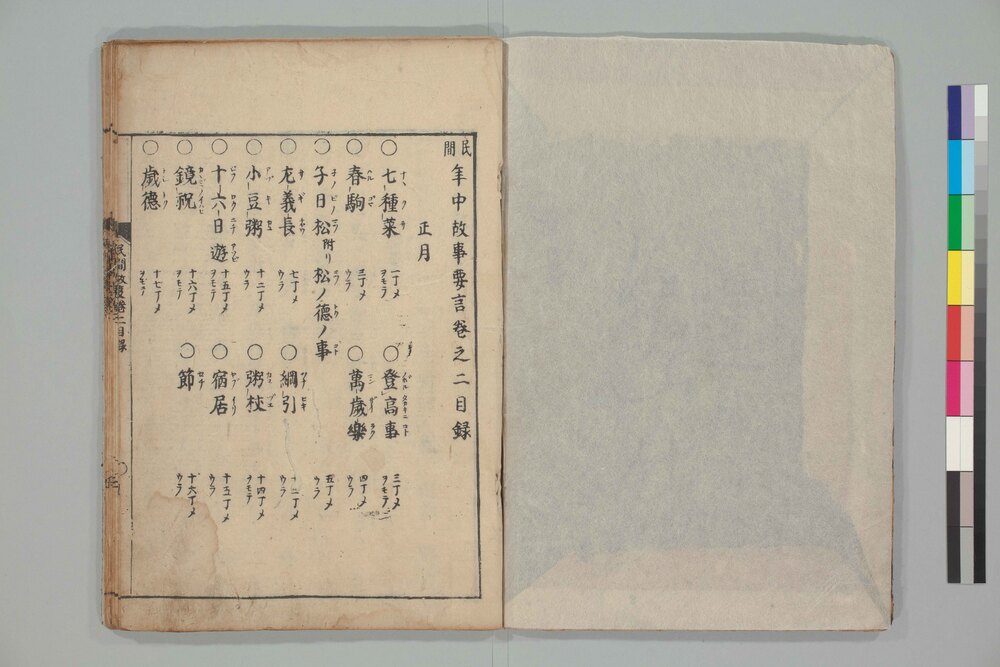 民間 年中故事要言卷之二目録
正月
○七種菜 一丁メヲモテ ○登高事 三丁メヲモテ
○春駒 三丁メウラ ○萬歳樂 四丁メウラ
○子日松附リ松ノ徳ノ事 五丁メウラ
○左義長 七丁メウラ ○綱引 十二丁メウラ
○小豆粥 十二丁メウラ ○粥杖 十四丁メヲモテ
○十六日遊 十五丁メヲモテ ○宿居 十五丁メウラ
○鏡祝 十六丁メヲモテ ○節 十六丁メウラ
○歳徳 十七丁メヲモテ